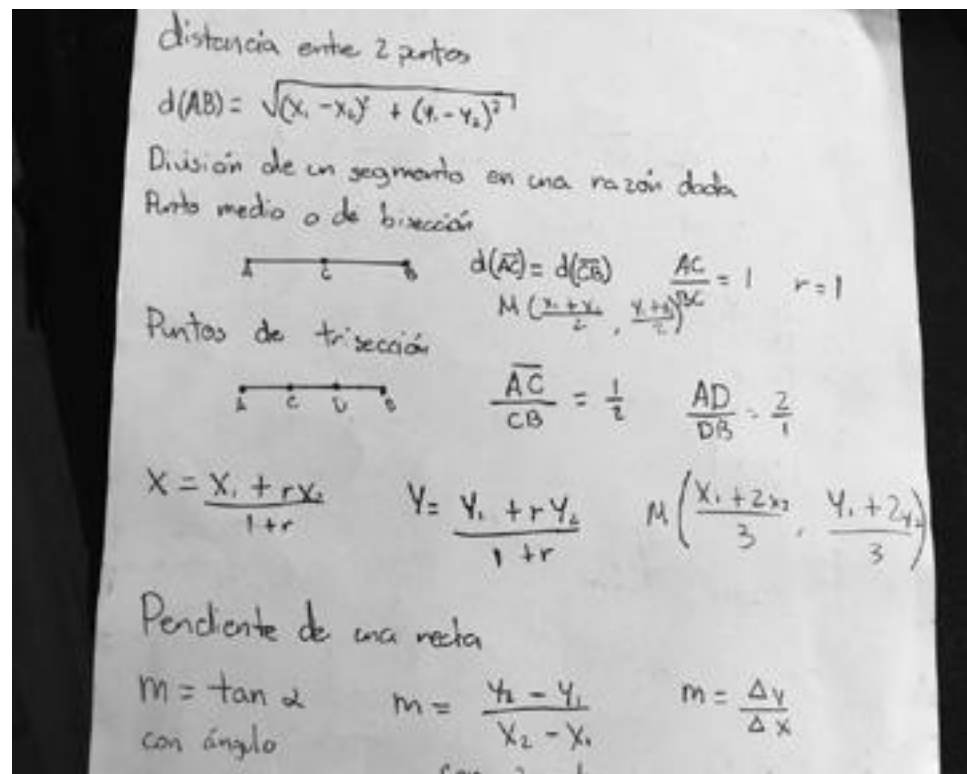 distancia entre 2 puntos
d(AB) = √(x₁ - x₂)² + (y₁ - y₂)²
División de un segmento en una razón dada
Punto medio o de bisección
A C B d(A̅C̅) = d(C̅B̅) AC/BC = 1 r = 1
M (x₁ + x₂/2 , y₁ + y₂/2)
Puntos de trisección
A C D B A̅C̅/CB = 1/2 AD/DB = 2/1
X = x₁ + rx₂/1 + r Y = Y₁ + rY₂/1 + r M (x₁ + 2x₂/3 , y₁ + 2y₂/3)
Pendiente de una recta
m = tan α m = y₂ - y₁/x₂ - x₁ m = Δy/Δx
con ángulo
con 2